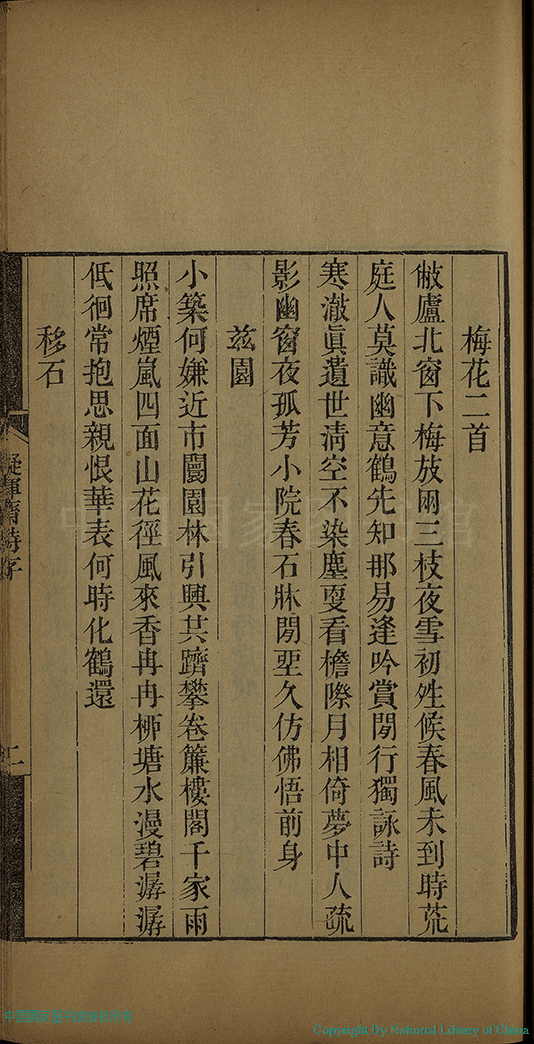 梅花二首
敝廬北窗下梅放兩三枝夜雪初殅候春風未到時荒
庭人莫識幽意鶴先知那易逢吟賞閒行獨詠詩
寒澈眞遺世淸空不染塵耍看檐際月相倚夢中人疏
影幽窗夜孤芳小院春石牀閒坐久仿佛悟前身
茲園
小築何嫌近市闤園林引興共躋攀卷簾樓閣千家雨
照席煙嵐四面山花徑風來香冉冉栁塘水漫碧潺潺
低徊常抱思親恨華表何時化鶴還
移石
二
Copyright By National Library of China